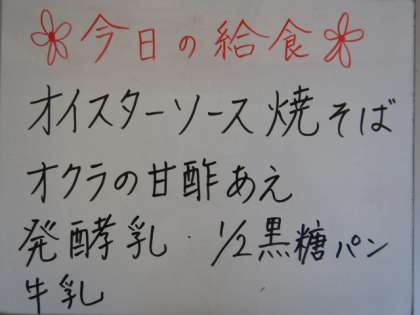 今日の給食
オイスターソース焼そば
オクラの甘酢あえ
発酵乳・1/2黒糖パン
牛乳